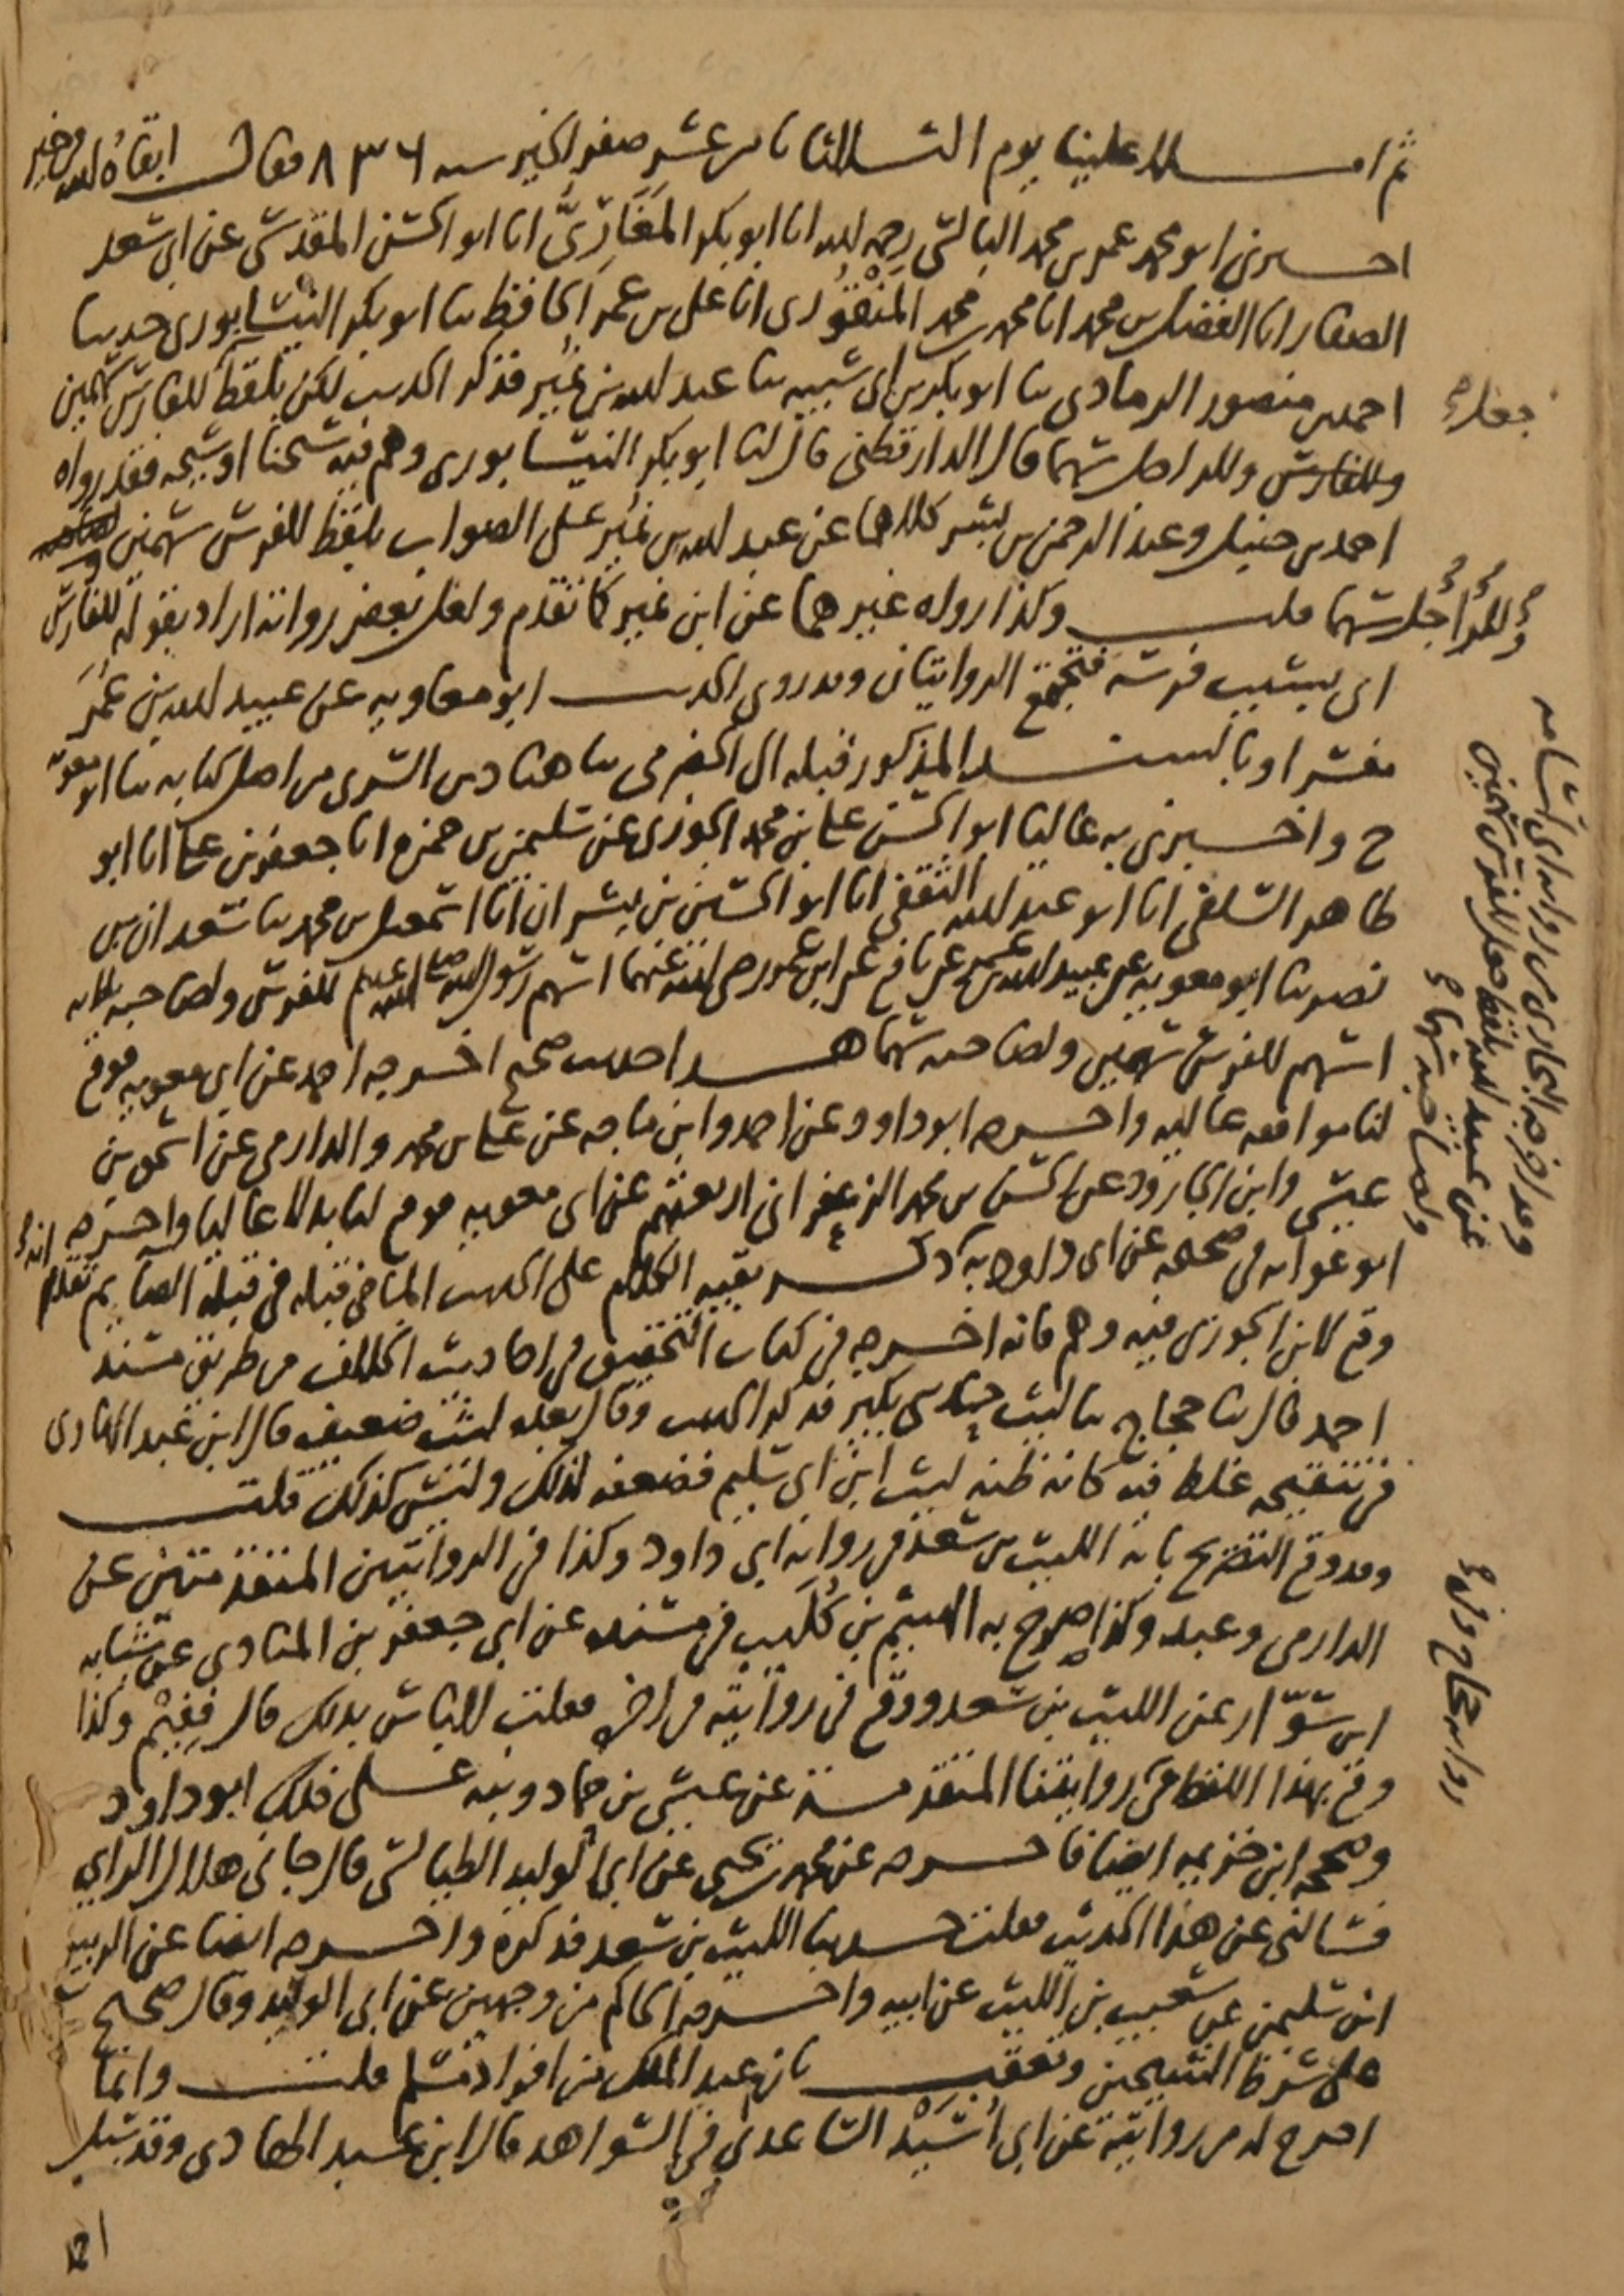 ثم املا علينا يوم الثلاثا ثامن عشر صفر الخير سنه ٨٣٦ فقال ابقاه الله في خير
اخبرني ابو محمد عمر بن محمد البالسي رحمه الله انا ابو بكر المغاري انا ابو الحسن المقدسي عن ابي سعد
الصفار انا الفضل بن محمد انا محمد بن محمد انا علي بن عمر الحافظ ثنا ابو بكر النيسابوري حدثنا
احمد بن منصور الرمادي ثنا ابو بكر بن ابي شيبه ثنا عبد الله بن نمير فذكر الحديث لكن بلفظ للفارس سهمين
وللفارس وللراجل سهما قال الدارقطني قال لنا ابو بكر النيسابوري وهم فيه شيخنا او شيخه فقد رواه
احمد بن حنبل وعبد الرحمن بن بشر كلاهما عن عبد الله بن نمير على الصواب بلفظ للفرس سهمين
وللراجل سهما قلت وكذا رواه غيرهما عن ابن نمير كما تقدم ولعل بعض رواته اراد بقوله للفارس
اي بسبب فرسه فتجتمع الروايتان وقد روى الحديث ابو معاويه عن عبيد الله بن عمر
مفسرا وبالسند المذكور قبله الى الحضرمي ثنا هناد بن السري من اصل كتابه ثنا ابو معويه
ح واخبرني به عاليا ابو الحسن علي بن محمد الجوزي عن سليمن بن حمزه انا جعفر بن علي انا ابو
طاهر السلفي انا ابو عبد الله الثقفي انا ابو الحسين بن بشران انا اسمعيل بن محمد ثنا سعدان بن
نصر ثنا ابو معويه عن عبيد الله بن عمر عن نافع عن ابن عمر رضي الله عنهما اسهم رسول الله صلى الله عليه وسلم للفرس ولصاحبه ثلاثه
اسهم للفرس سهمين ولصاحبه سهما هذا حديث صحيح اخرجه احمد عن ابي معويه فوقع
لنا موافقه عاليه واخرجه ابو داود عن احمد وابن ماجه عن علي بن محمد والدارمي عن اسحق بن
عيسى وابن الجارود عن الحسن بن محمد الزعفراني اربعتهم عن ابي معويه فوقع لنا بدلا عاليا واخرجه
ابو عوانه في صحيحه عن ابي داود به ذكر بقيه الكلام على الحديث الماضي قبله في قبله الصايم تقدم انه
وقع لابن الجوزي فيه وهم فانه اخرجه في كتاب التحقيق في احاديث الخلاف من طريق مسند
احمد قال ثنا حجاج ثنا ليث حدثني بكير فذكر الحديث وقال بعده ليث ضعيف قال ابن عبد الهادي
في تنقيحه غلط فيه كانه ظنه ليث ابن ابي سليم فضعفه لذلك وليس كذلك قلت
وقد وقع التصريح بانه الليث بن سعد في روايه ابي داود وكذا في الروايتين المتقدمتين عن
الدارمي وعبد وكذا صرح به الهيثم بن كليب في مسنده عن ابي جعفر بن المنادي عن شبابه
ابن سوار عن الليث بن سعد ووقع في روايته من اخره فقلت لاباس بذلك قال ففيم وكذا
وقع بهذا اللفظ في روايتنا المتقدمة عن عيسى بن حماد ونبه على ذلك ابو داود
وصححه ابن خزيمه ايضا فاخرجه عن محمد بن يحيى عن ابي الوليد الطيالسي قال جاني هلال الراي
فسالني عن هذا الحديث فقلت حدثنا الليث بن سعد فذكره واخرجه ايضا عن الربيع
ابن سليمن عن شعيب بن الليث عن ابيه واخرجه الحاكم من وجهين عن ابي الوليد وقال صحيح
على شرط الشيخين وتعقب بان عبد الملك من افراد مسلم قلت وانما
اخرج له من روايته عن ابي اسيد الساعدي في الشواهد قال ابن عبد الهادي وقد سئل
وقد اخرجه البخاري من روايه ابي اسامه
عن عبيد الله بلفظ جعل للفرس سهمين
ولصاحبه سهما